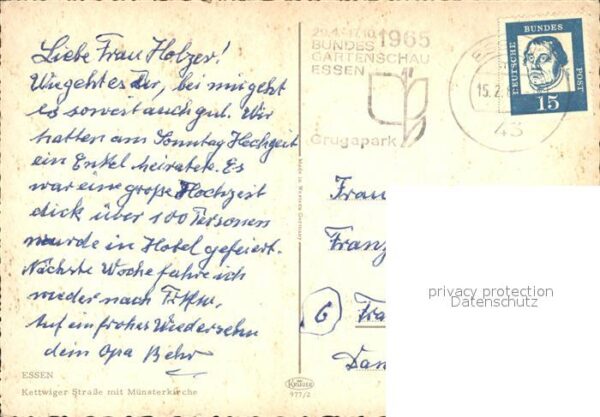 Liebe Frau Holzer!
Wie geht es Dir, bei mir geht
es soweit auch gut. Wir
hatten am Sonntag Hochzeit
ein Enkel heiratete. Es
war eine große Hochzeit
dick über 100 Personen
wurde in Hotel gefeiert.
Nächste Woche fahre ich
wieder nach
Auf ein frohes Wiedersehn
dein Opa Behr
ESSEN
Kettwiger Straße mit Münsterkirche
29.4.-17.10. 1965
BUNDES
GARTENSCHAU
ESSEN
Grugapark
15.2.
43
DEUTSCHE
BUNDES
POST
15
Frau
Franz
Dan
Krüger
977/2
privacy protection
Datenschutz